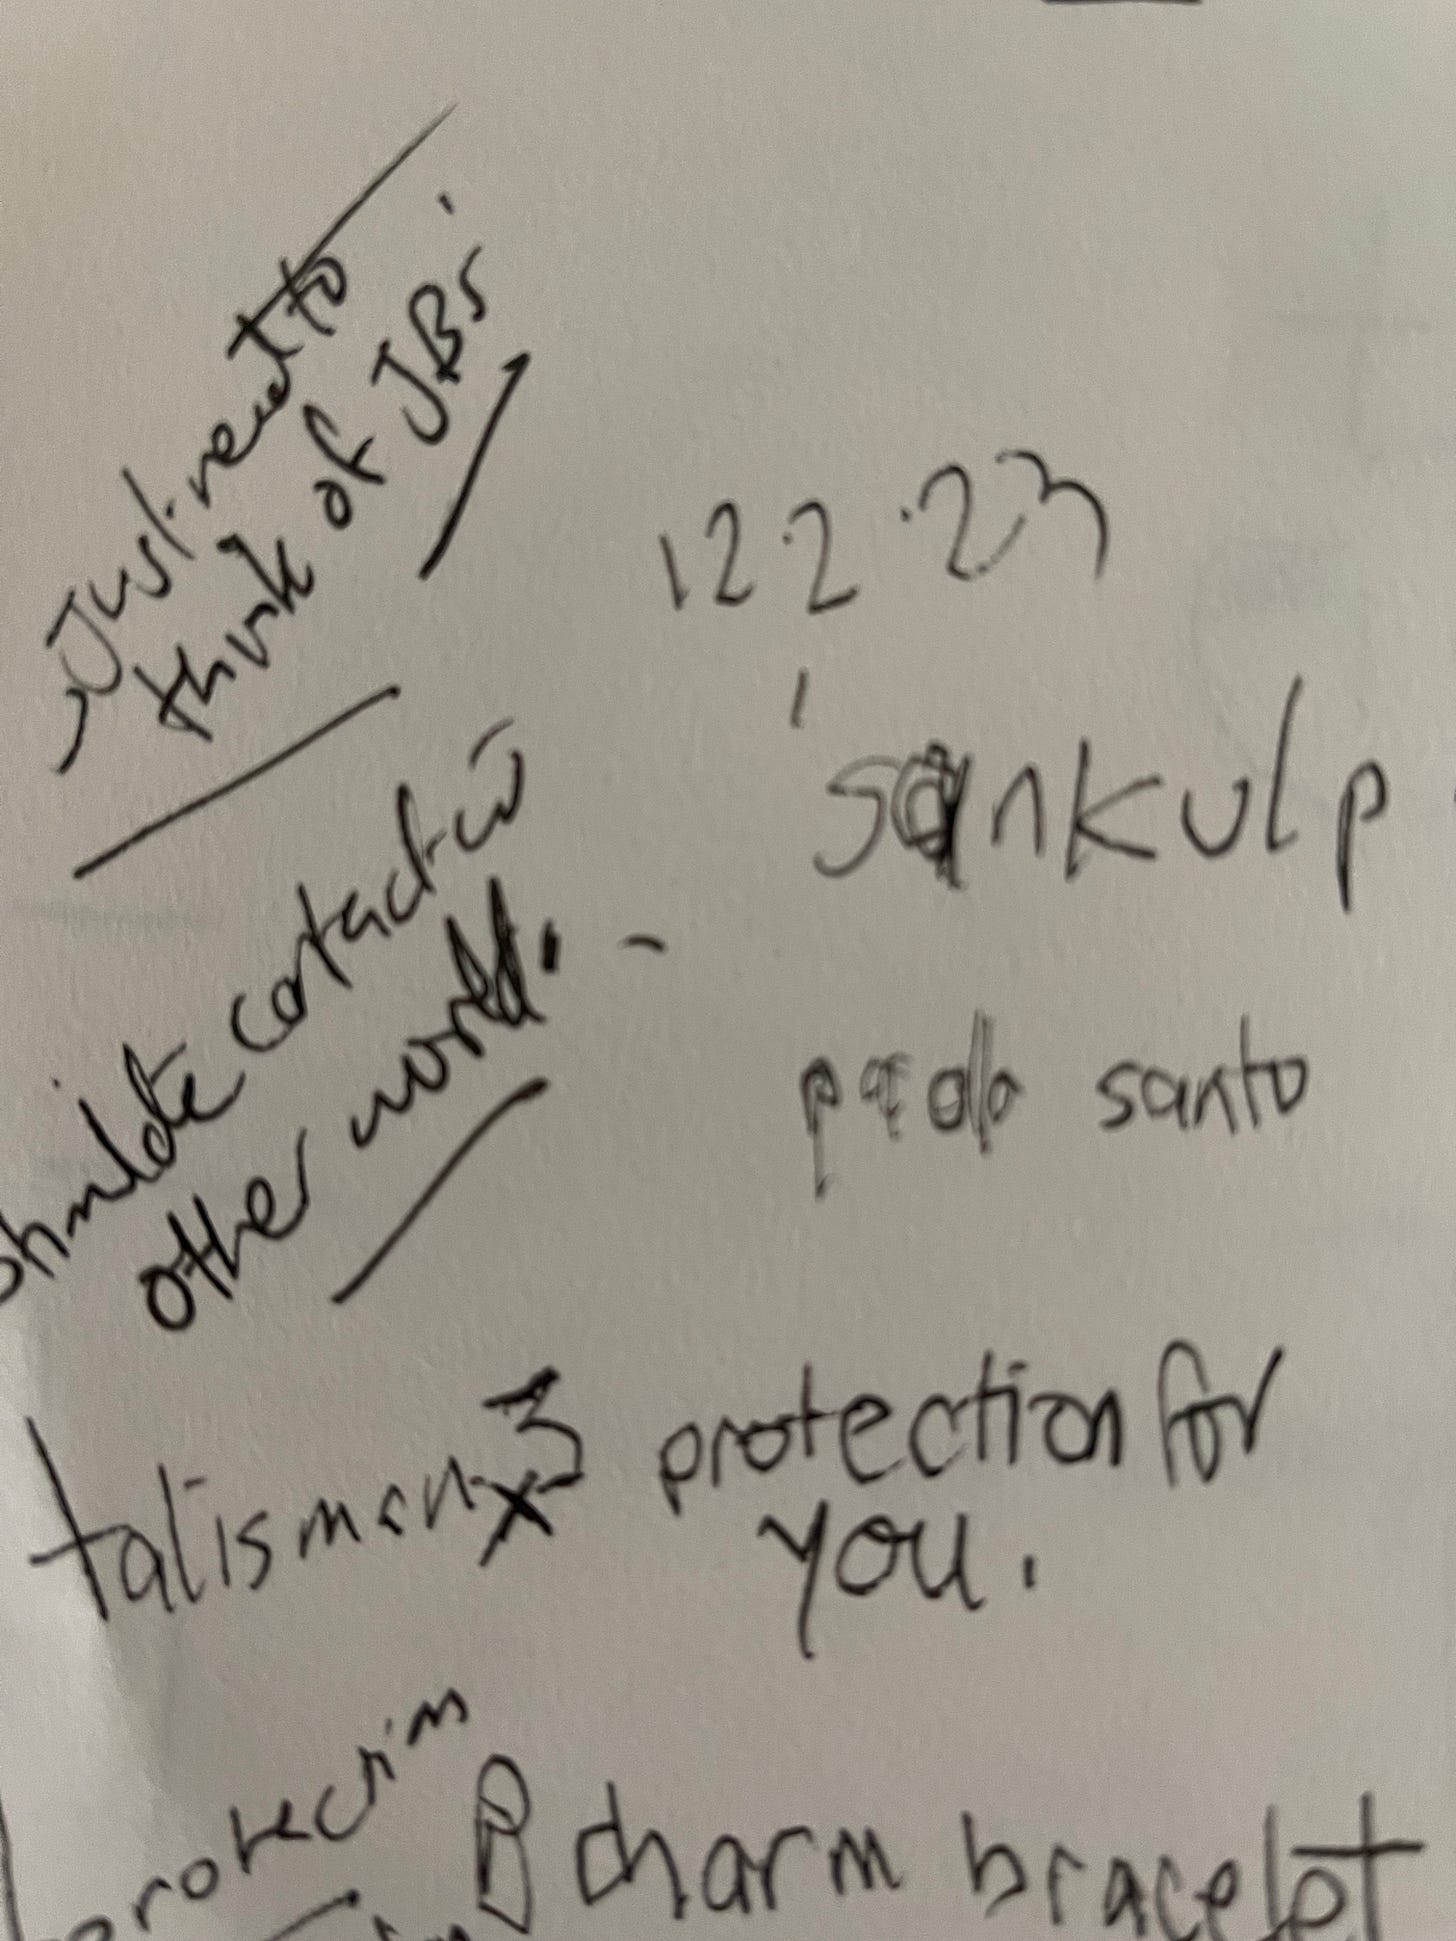 Just need to
think of JBs
12.2.23
sankulp
contact w
other world.
santo
talisman x3 protection for
you.
protection
charm bracelet